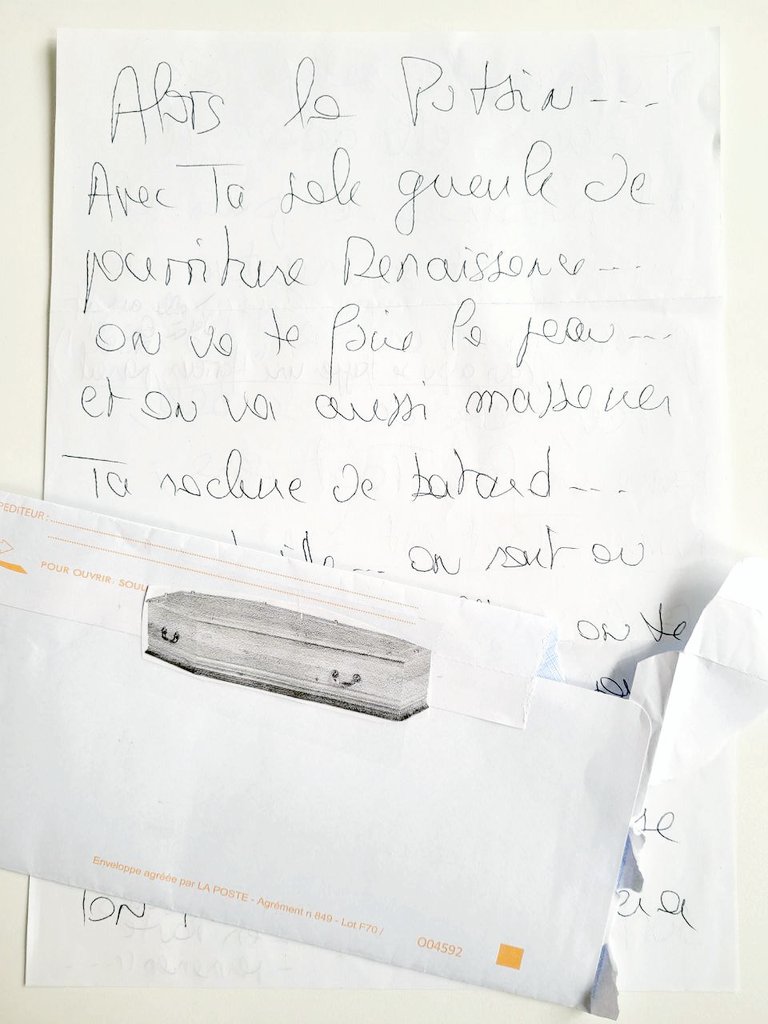 Alors la Putain ---
Avec Ta sale gueule de
pourriture Renaissance ---
on va te faire la peau ---
et on va aussi massacrer
Ta raclure de batard ---
on sait ou
on te
EXPEDITEUR :
POUR OUVRIR: SOUL
se
on
Enveloppe agréée par LA POSTE - Agrément n 849 - Lot F70 /
O04592